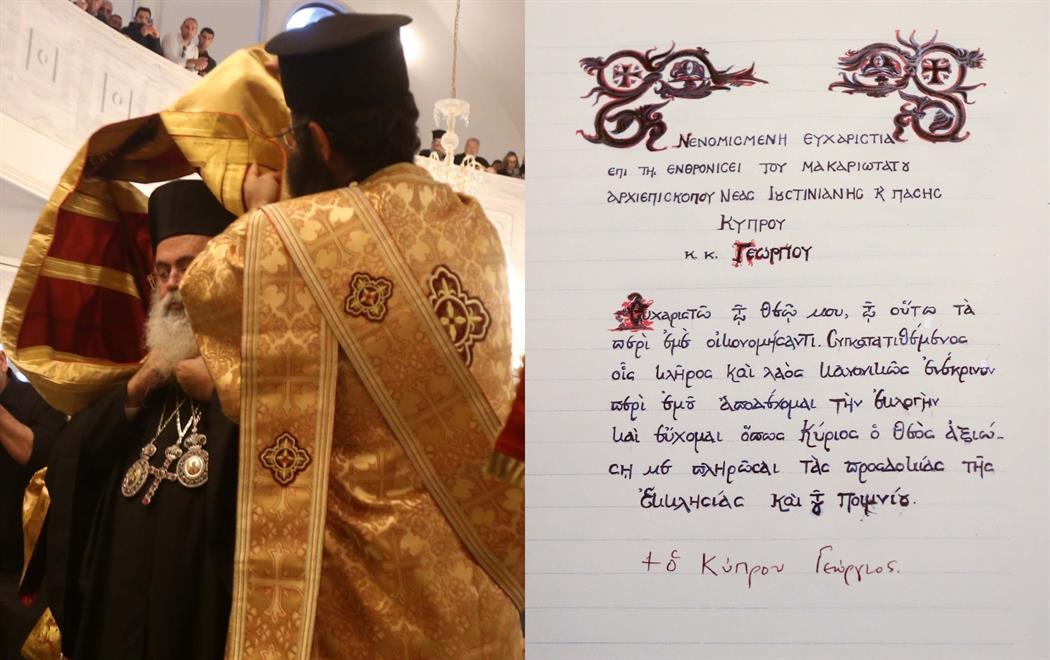 Νενομισμένη εὐχαριστία
ἐπὶ τῇ ἐνθρονίσει τοῦ μακαριωτάτου
ἀρχιεπισκόπου Νέας Ἰουστινιανῆς κ πάσης
Κύπρου
κ. κ. Γεωργίου
Εὐχαριστῶ τῷ Θεῷ μου, τῷ οὕτω τὰ
περὶ ἐμὲ οἰκονομήσαντι. Συγκατατιθέμενος
οἷς κλῆρος καὶ λαὸς κανονικῶς ἐνέκρινον
περὶ ἐμοῦ ἀποδέχομαι τὴν ἐκλογὴν
καὶ εὔχομαι ὅπως Κύριος ὁ Θεὸς ἀξιώ-
σῃ με πληρῶσαι τὰς προσδοκίας τῆς
Ἐκκλησίας καὶ τοῦ Ποιμνίου.
+ ὁ Κύπρου Γεώργιος.